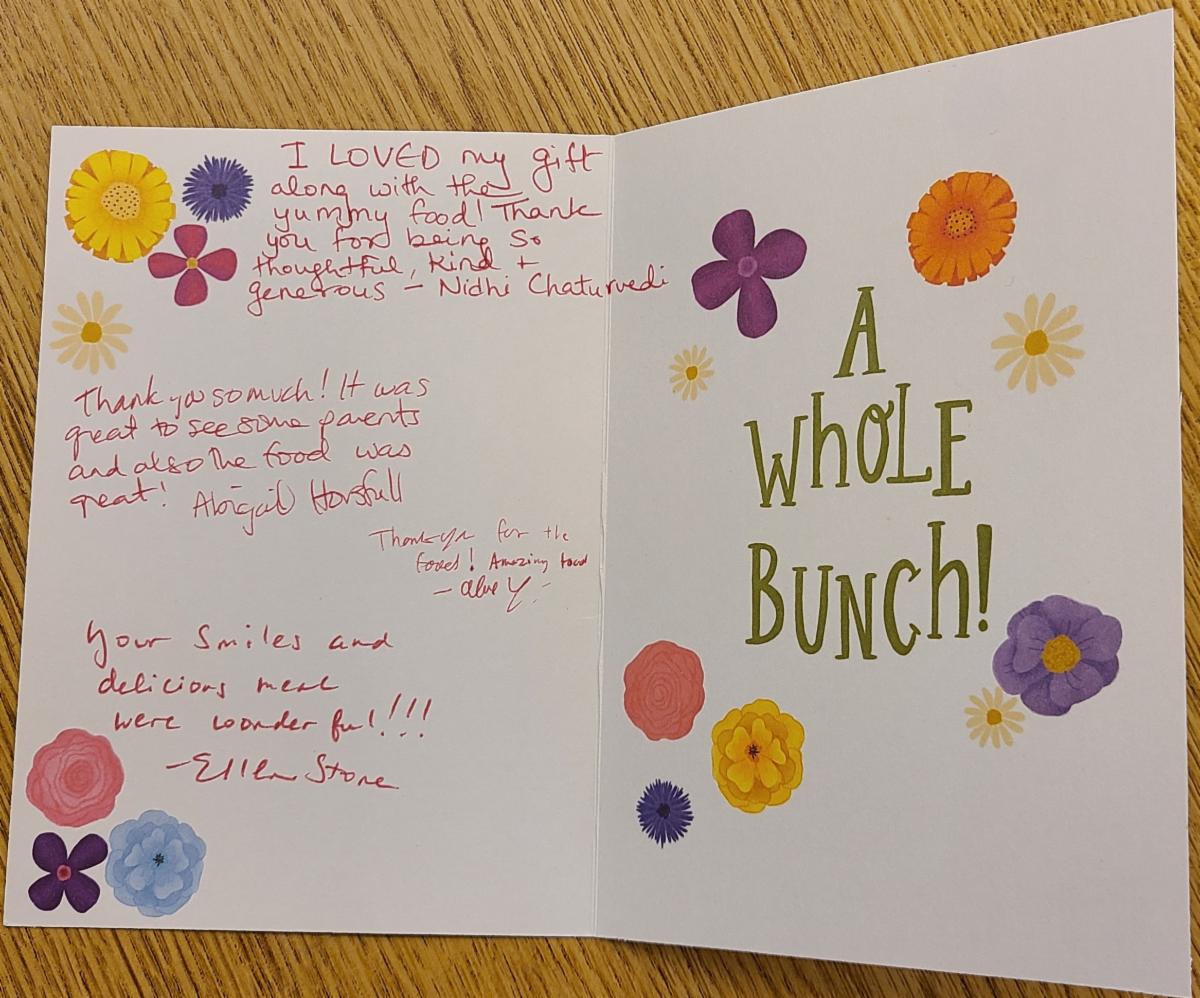 I LOVED my gift
along with the
yummy food! Thank
you for being so
thoughtful, kind +
generous - Nidhi Chaturvedi
Thank you so much! It was
great to see some parents
and also the food was
great! Abigail Horsfall
Thank you for the
food! Amazing food
Your smiles and
delicious meal
were wonderful!!!
- Ellen Stone
A
WhOLE
BUNCh!